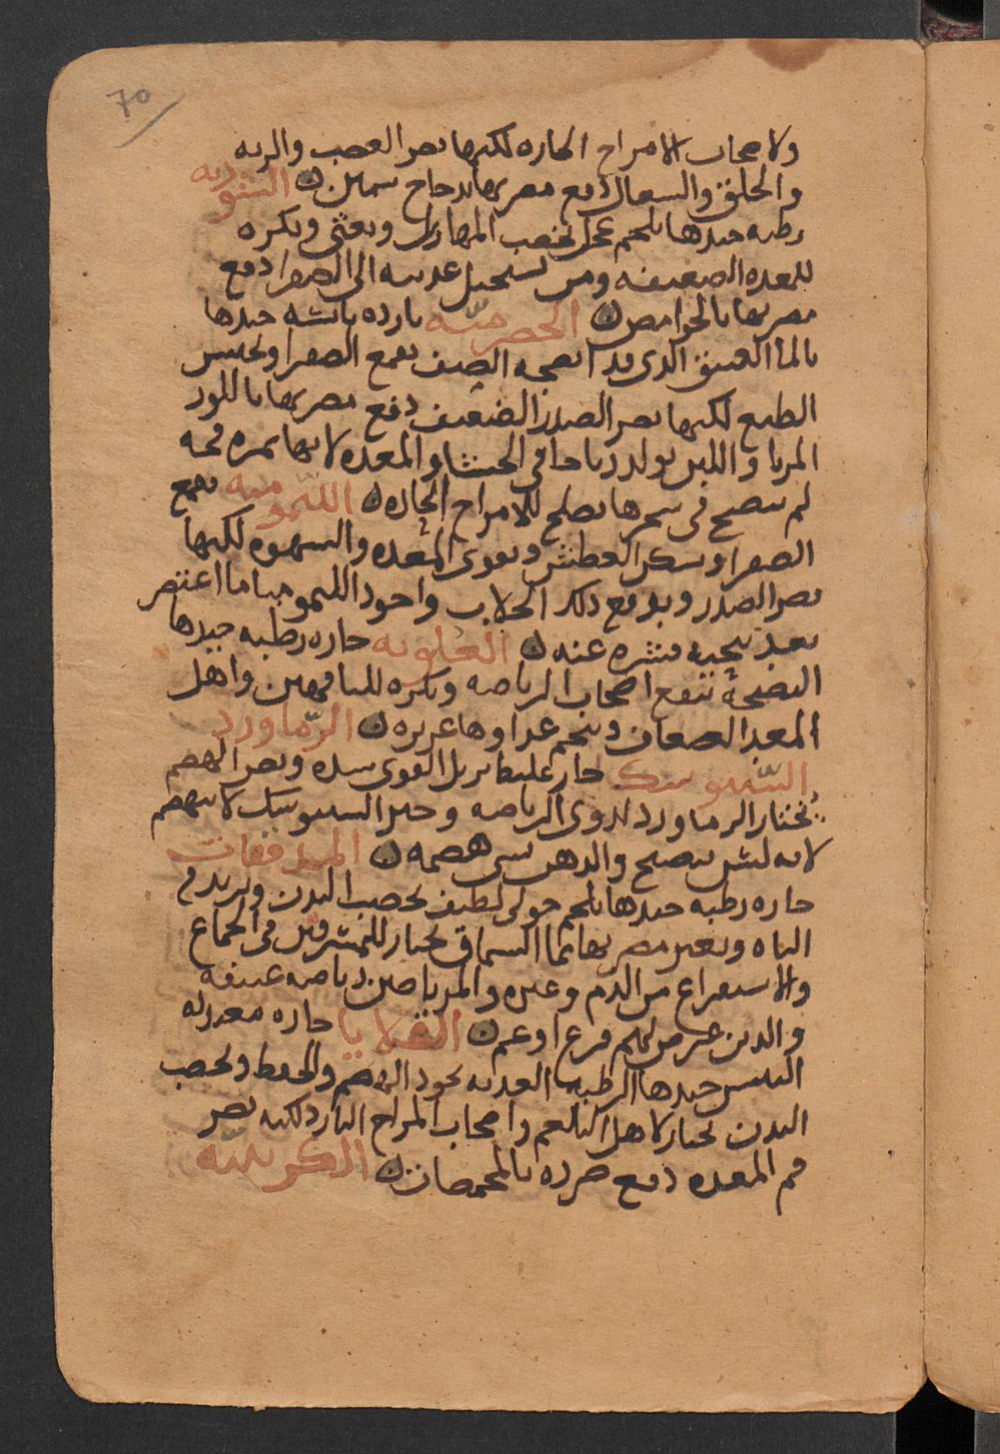 70
ولاصحاب الامزاج الحاره لكنها تضر العصب والريه
والحلق والسعال دفع مضرتها بدجاج سمين ن التنوريه
رطبه جيدها بلحم عجل تخصب المهازيل وتغثي وتكره
للمعده الضعيفه ومن تستحيل اغذيته الى الصفرا دفع
مضرتها بالحوامض ن الحصرميه بارده يابسه جيدها
بالما العتيق الذي قد انضجه الصيف تقمع الصفرا وتحبس
الطبع لكنها تضر الصدر الضعيف دفع مضرتها باللوز
المربا واللبن تولد رياحا في الحشا والمعده لانها ثمره فجه
لم تنضج في شجرها تصلح للامزاج الحاره ن الليمونيه تقمع
الصفرا وتسكن العطش وتقوي المعده والشهوه لكنها
تضر الصدر ويدفع ذلك الجلاب واجود الليمو مياما اعتصر
بعد تنحيه قشره عنه ن حاره رطبه جيدها
النضجه تنفع اصحاب الرياضه وتكره للناقهين واهل
المعد الضعاف وبلحم غذاوها غزيره ن الزماورد
السنبوسك حار غليظ يزيل القوى سده ويضر الهضم
يختار الزماورد لذوي الرياضه وخبز السنبوسك لا ينهضم
لانه ليس بنضيج والدهن يسي هضمه ن المدققات
حاره رطبه جيدها بلحم حولي لطيف تخصب البدن وتزيد في
الباه وتغير مضرتها بما السماق تختار للمسرفين في الجماع
والاستفراغ من الدم وغيره والمرتاضين رياضه عنيفه
والذين عرض لهم فزع او غم ن القلايا حاره معتدله
اليبس جيدها الرطبه العذبه تجود الهضم والحفظ وتخصب
البدن تختار لاهل البلغم واصحاب المزاج البارد لكنه تضر
فم المعده دفع ضرره بالمحمضات ن الكرنبيه